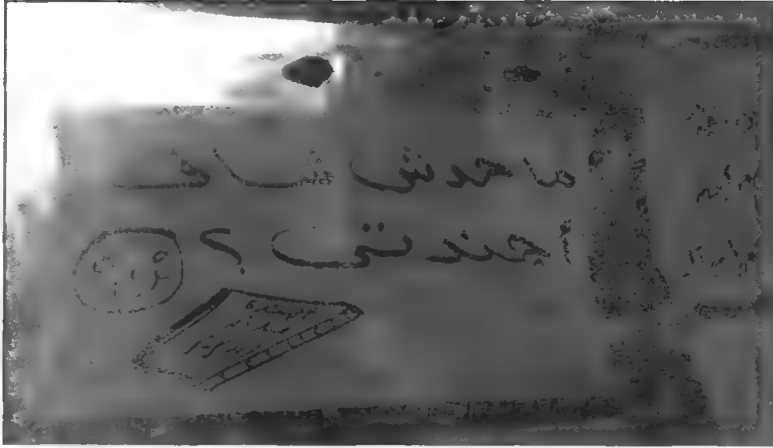 محدش شاف
اجندتى ؟